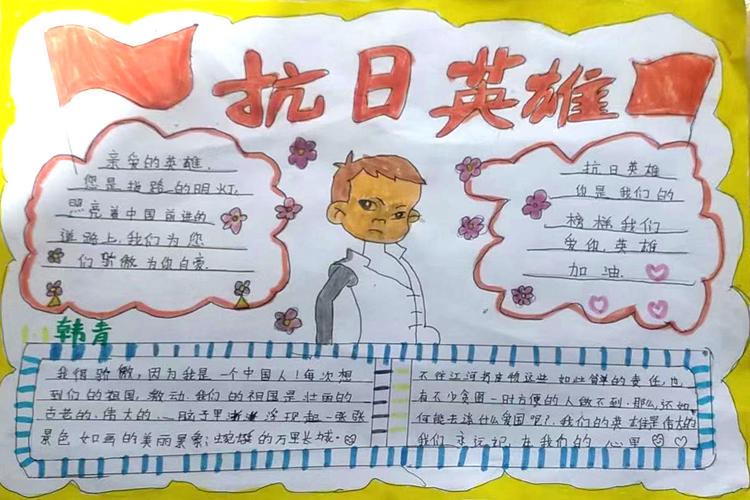 抗日英雄
亲爱的英雄.
您是指路的明灯.
照亮着中国前进的
道路上.我们为您
们骄傲为你自豪.
抗日英雄
你是我们的
榜样我们
爱你英雄
加油.
韩青
我很骄傲,因为我是一个中国人!每次想
到们的祖国,激动.我们的祖国是壮丽的
古老的.伟大的.一脑子里浮现起一张张
景色如画的美丽景象;蜿蜒的万里长城.
不往江河扔废物这些如此简单的责任,也
有不少贪图一时方便的人做不到.那么,还如
何能去谈什么爱国呢?.我们的英雄是伟大的
我们永远记在我们的心里